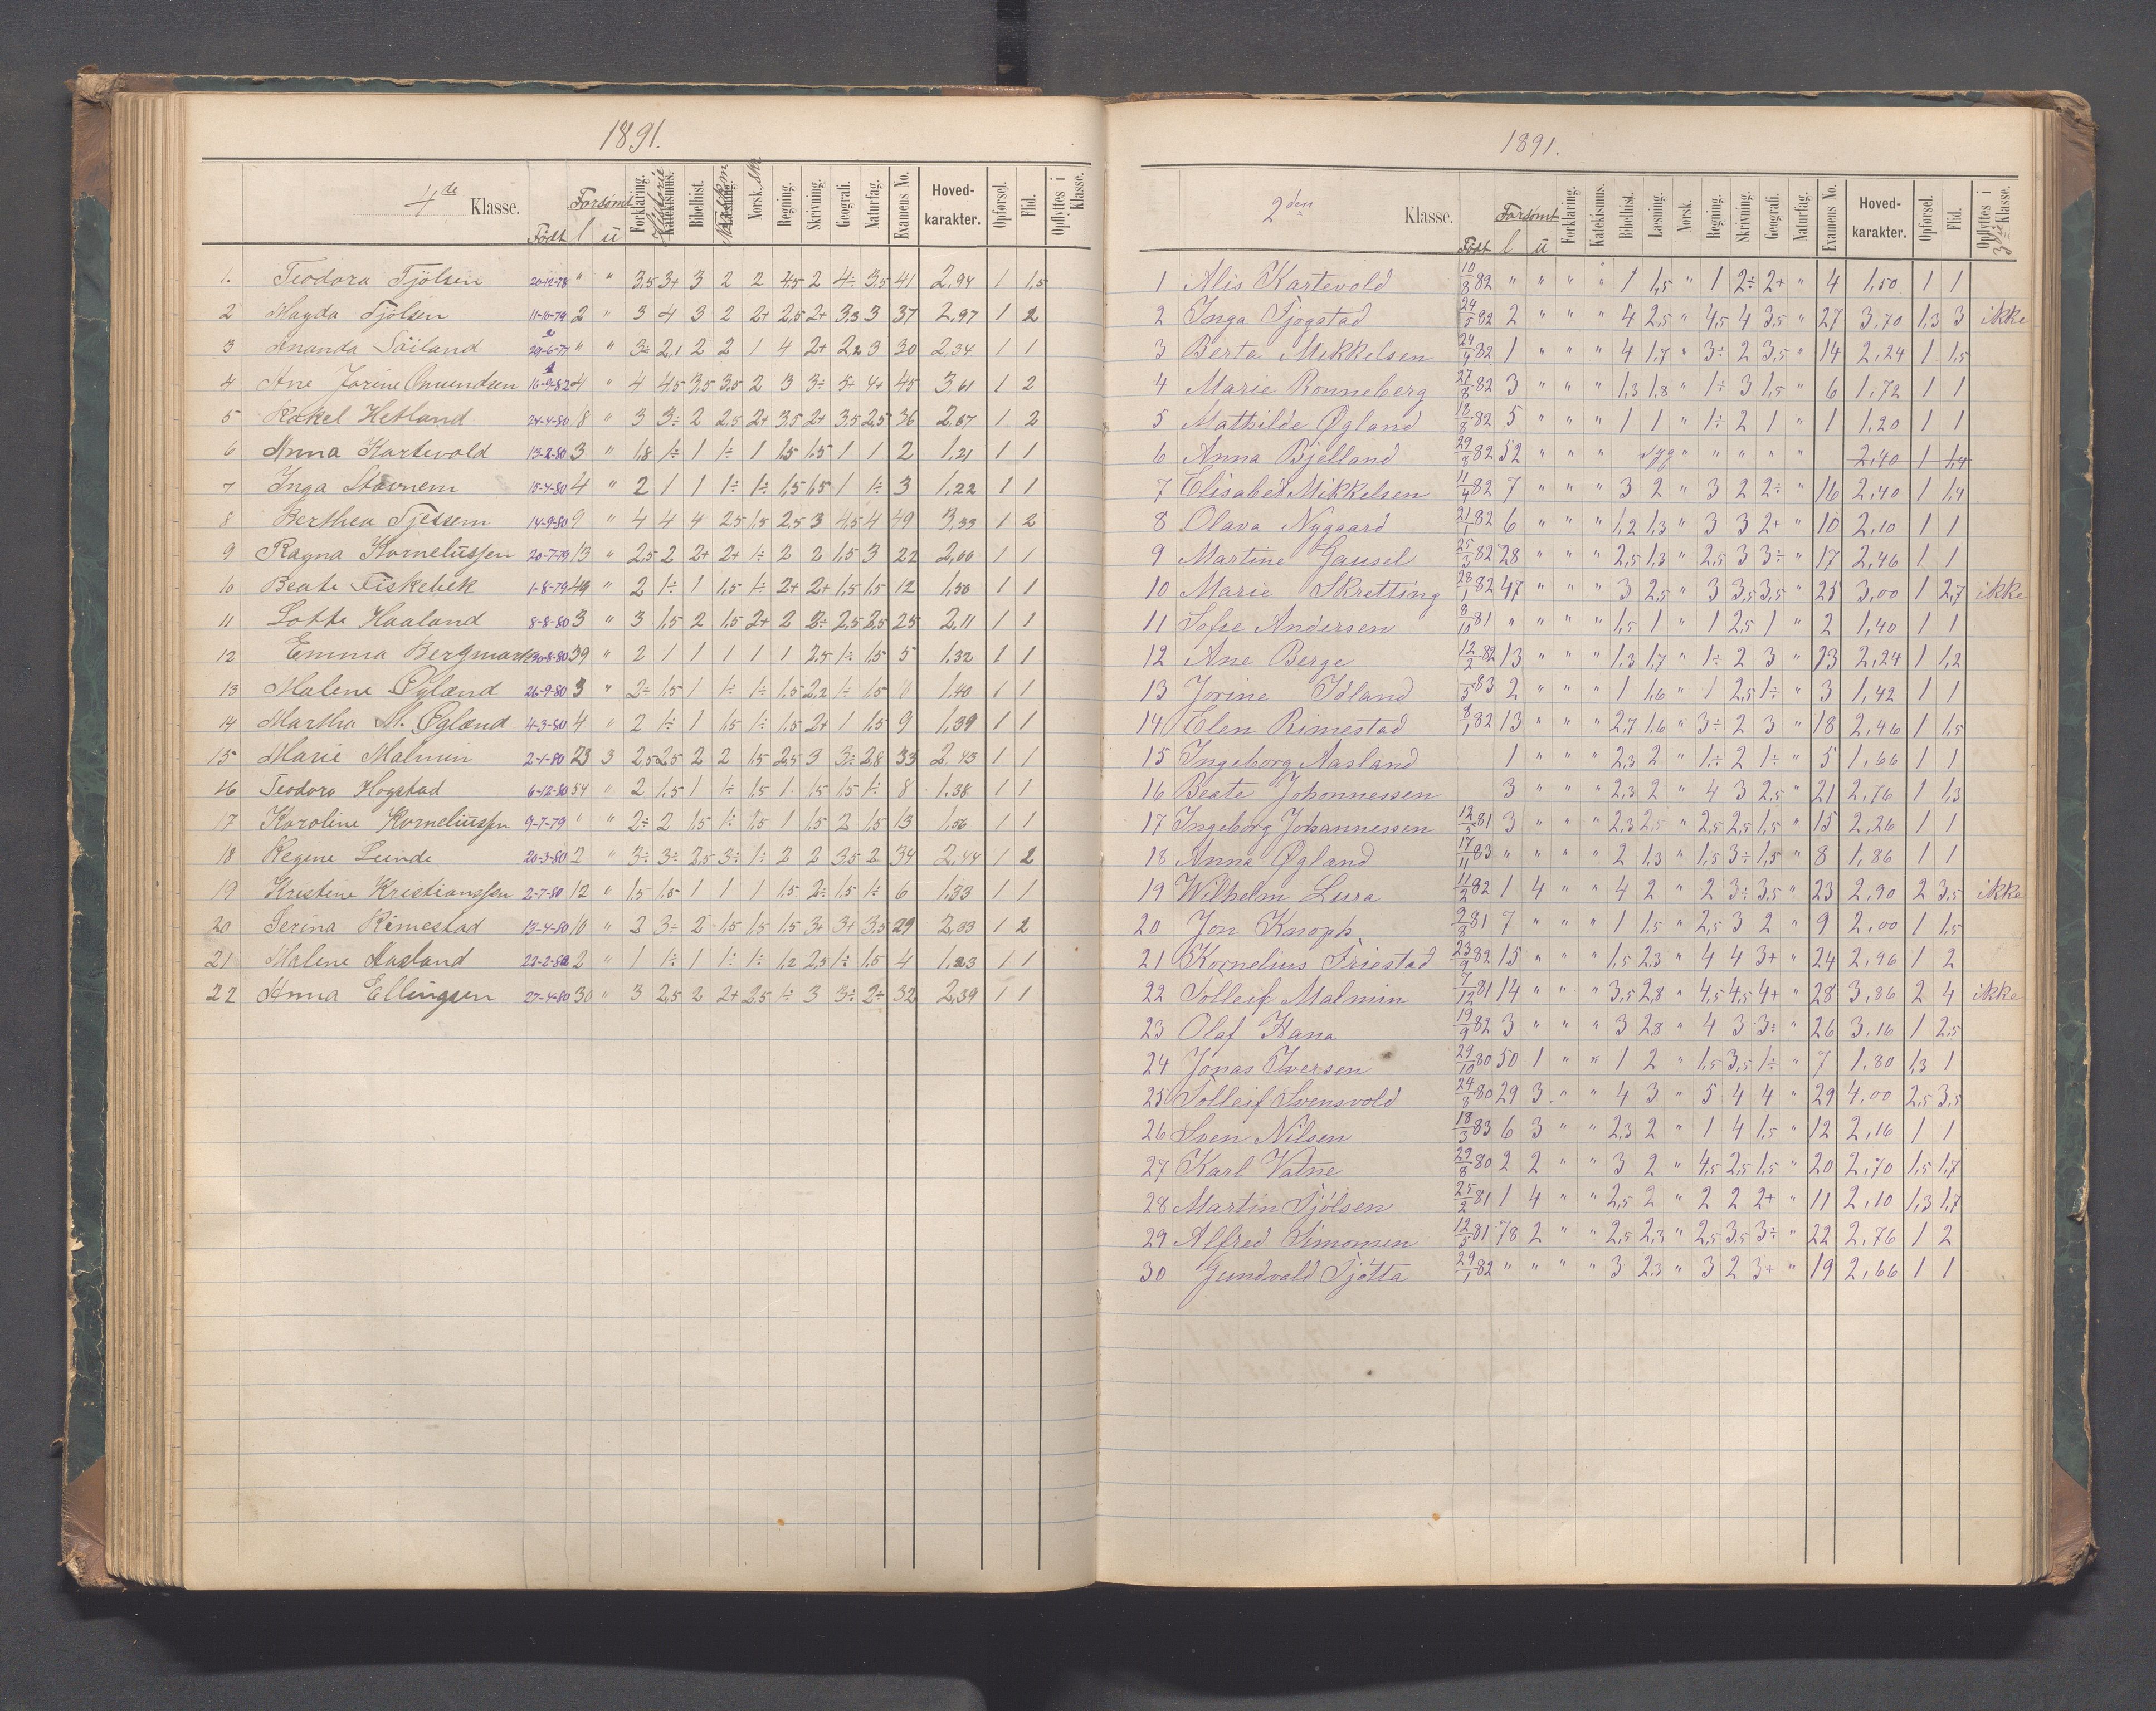 1891.
4de Klasse. Født Forsømt l u Forklaring. Katekismus. Historie Bibelhist. Læsning. Norsk. skr. Regning. Skrivning. Geografi. Naturfag. Examens No. Hoved-karakter. Opførsel. Flid. Opflyttes i Klasse.
1. Teodora Tjölsen 20-12-78 " " 3,5 3+ 3 2 2 4,5 2 4÷ 3,5 41 2,94 1 1,5
2 Magda Tjölsen 11-10-79 2 " 3 4 3 2 2+ 2,5 2+ 3,3 3 37 2,97 1 2
3 Ananda Söiland " " 3÷ 2,1 2 2 1 4 2+ 2,2 3 30 2,34 1 1
4 Ane Jorine Omundsen 16-9-82 4 " 4 4,5 3,5 3,5 2 3 3÷ 5+ 4+ 45 3,61 1 2
5 Rakel Hetland 24-4-80 8 " 3 3÷ 2 2,5 2+ 3,5 2+ 3,5 2,5 36 2,67 1 2
6 Anna Kartevold 13-2-80 3 " 1,8 1÷ 1 1÷ 1 1,5 1,5 1 1 2 1,21 1 1
7 Inga Stavnem 15-4-80 4 " 2 1 1 1÷ 1÷ 1,5 1,5 1 1÷ 3 1,22 1 1
8 Berthea Tjessem 14-9-80 9 " 4 4 4 2,5 1,5 2,5 3 4,5 4 49 3,33 1 2
9 Ragna Kornelüssen 20-7-79 13 " 2,5 2 2+ 2+ 1÷ 2 2 1,5 3 22 2,00 1 1
10 Beate Fiskebek 1-8-79 49 " 2 1÷ 1 1,5 1÷ 2+ 2+ 1,5 1,5 12 1,50 1 1
11 Lotte Haaland 8-8-80 3 " 3 1,5 2 1,5 2+ 2 2÷ 2,5 2,5 25 2,11 1 1
12 Emma Bergmark 30-8-80 39 " 2 1 1 1 1 1 2,5 1÷ 1,5 5 1,32 1 1
13 Malene Øgland 26-9-80 3 " 2÷ 1,5 1 1÷ 1÷ 1,5 2,2 1÷ 1,5 1,40 1 1
14 Martha M. Øgland 4-3-80 4 " 2 1÷ 1 1,5 1÷ 1,5 2+ 1 1,5 9 1,39 1 1
15 Marie Malmin 2-1-80 23 3 2,5 2,5 2 2 1,5 2,5 3 3÷ 2,8 33 2,43 1 1
16 Teodora Hogstad 6-12-80 54 " 2 1,5 1 1÷ 1,5 1 1,5 1,5 1÷ 8 1,38 1 1
17 Karoline Korneliussen 9-7-79 " " 2÷ 2 1,5 1÷ 1,5 1 1,5 2 1,5 13 1,56 1 1
18 Regine Lunde 20-3-80 2 " 3÷ 3÷ 2,5 3÷ 1÷ 2 2 3,5 2 34 2,44 1 2
19 Kristine Kristianssen 2-7-80 12 " 1,5 1,5 1 1 1 1,5 2÷ 1,5 1÷ 6 1,33 1 1
20 Serina Rimestad 13-4-80 10 " 2 3÷ 2 1,5 1,5 1,5 3+ 3+ 3,5 29 2,33 1 2
21 Malene Aasland 2 " 1 1÷ 1 1÷ 1÷ 1,2 2,5 1÷ 1,5 4 1,23 1 1
22 Anna Ellingsen 27-4-80 30 " 3 2,5 2 2+ 2,5 1÷ 3 3÷ 2÷ 32 2,39 1 1
1891.
2den Klasse. Født Forsømt l u Forklaring. Katekismus. Bibelhist. Læsning. Norsk. Regning. Skrivning. Geografi. Naturfag. Examens No. Hoved-karakter. Opførsel. Flid. Opflyttes i 3die Klasse.
1 Alis Kartevold 10/8 82 " " " " 1 1,5 " 1 2÷ 2+ " 4 1,50 1 1
2 Inga Tjogstad 24/5 82 2 " " " 4 2,5 " 4,5 4 3,5 " 27 3,70 1,3 3 ikke
3 Berta Mikkelsen 24/4 82 1 " " " 4 1,7 " 3÷ 2 3,5 " 14 2,24 1 1,5
4 Marie Ronneberg 27/8 82 3 " " " 1,3 1,8 " 1÷ 3 1,5 " 6 1,72 1 1
5 Mathilde Øgland 18/8 82 5 " " " 1 1 " 1÷ 2 1 " 1 1,20 1 1
6 Anna Bjelland 29/8 82 52 " " " syg " " " " " 2,40 1 1,4
7 Elisabet Mikkelsen 11/4 82 7 " " " 3 2 " 3 2 2÷ " 16 2,40 1 1,4
8 Olava Nygaard 21/1 82 6 " " " 1,2 1,3 " 3 3 2+ " 10 2,10 1 1
9 Martine Gausel 25/3 82 28 " " " 2,5 1,3 " 2,5 3 3÷ " 17 2,46 1 1
10 Marie Skretting 28/1 82 47 " " " 3 2,5 " 3 3,5 3,5 " 25 3,00 1 2,7 ikke
11 Sofie Andersen 8/10 81 " " " " 1,5 1 " 1 2,5 1 " 2 1,40 1 1
12 Ane Berge 12/2 82 13 " " " 1,3 1,7 " 1÷ 2 3 " 13 2,24 1 1,2
13 Jorine Idland /5 83 2 " " " 1 1,6 " 1 2,5 1÷ " 3 1,42 1 1
14 Elen Rimestad 8/1 82 13 " " " 2,7 1,6 " 3÷ 2 3 " 18 2,46 1 1,5
15 Ingeborg Aasland 1 " " " 2,3 2 " 1÷ 2 1÷ " 5 1,66 1 1
16 Beate Johannessen 3 " " " 2,3 2 " 4 3 2,5 " 21 2,76 1 1,3
17 Ingeborg Johannessen 12/5 81 3 " " " 2,3 2,5 " 2,5 2,5 1,5 " 15 2,26 1 1
18 Anna Øgland 17/11 83 " " " " 2 1,3 " 1,5 3÷ 1,5 " 8 1,86 1 1
19 Wilhelm Lura 11/2 82 1 4 " " 4 2 " 2 3÷ 3,5 " 23 2,90 2 3,5 ikke
20 Jon Knoph 2/8 81 7 " " " 1 1,5 " 2,5 3 2 " 9 2,00 1 1,5
21 Kornelius Friestad 23/9 82 15 " " " 1,5 2,3 " 4 4 3+ " 24 2,96 1 2
22 Tolleif Malmin 7/12 81 14 " " " 3,5 2,8 " 4,5 4,5 4+ " 28 3,86 2 4 ikke
23 Olaf Hana 19/9 82 3 " " " 3 2,8 " 4 3 3÷ " 26 3,16 1 2,5
24 Jonas Iversen 29/10 80 50 1 " " 1 2 " 1,5 3,5 1÷ " 7 1,80 1,3 1
25 Tolleif Svensvold 24/8 80 29 3 " " 4 3 " 5 4 4 " 29 4,00 2,5 3,5
26 Sven Nilsen 18/3 83 6 3 " " 2,3 2 " 1 4 1,5 " 12 2,16 1 1
27 Karl Vatne 29/8 80 2 2 " " 3 2 " 4,5 2,5 1,5 " 20 2,70 1,5 1,7
28 Martin Tjölsen 25/2 81 1 4 " " 2,5 2 " 2 2 2+ " 11 2,10 1,3 1,7
29 Alfred Simonsen 12/5 81 78 2 " " 2,5 2,3 " 2,5 3,5 3÷ " 22 2,76 1 2
30 Gundvald Tjøtta 29/1 82 " " " " 3 2,3 " 3 2 3+ " 19 2,66 1 1